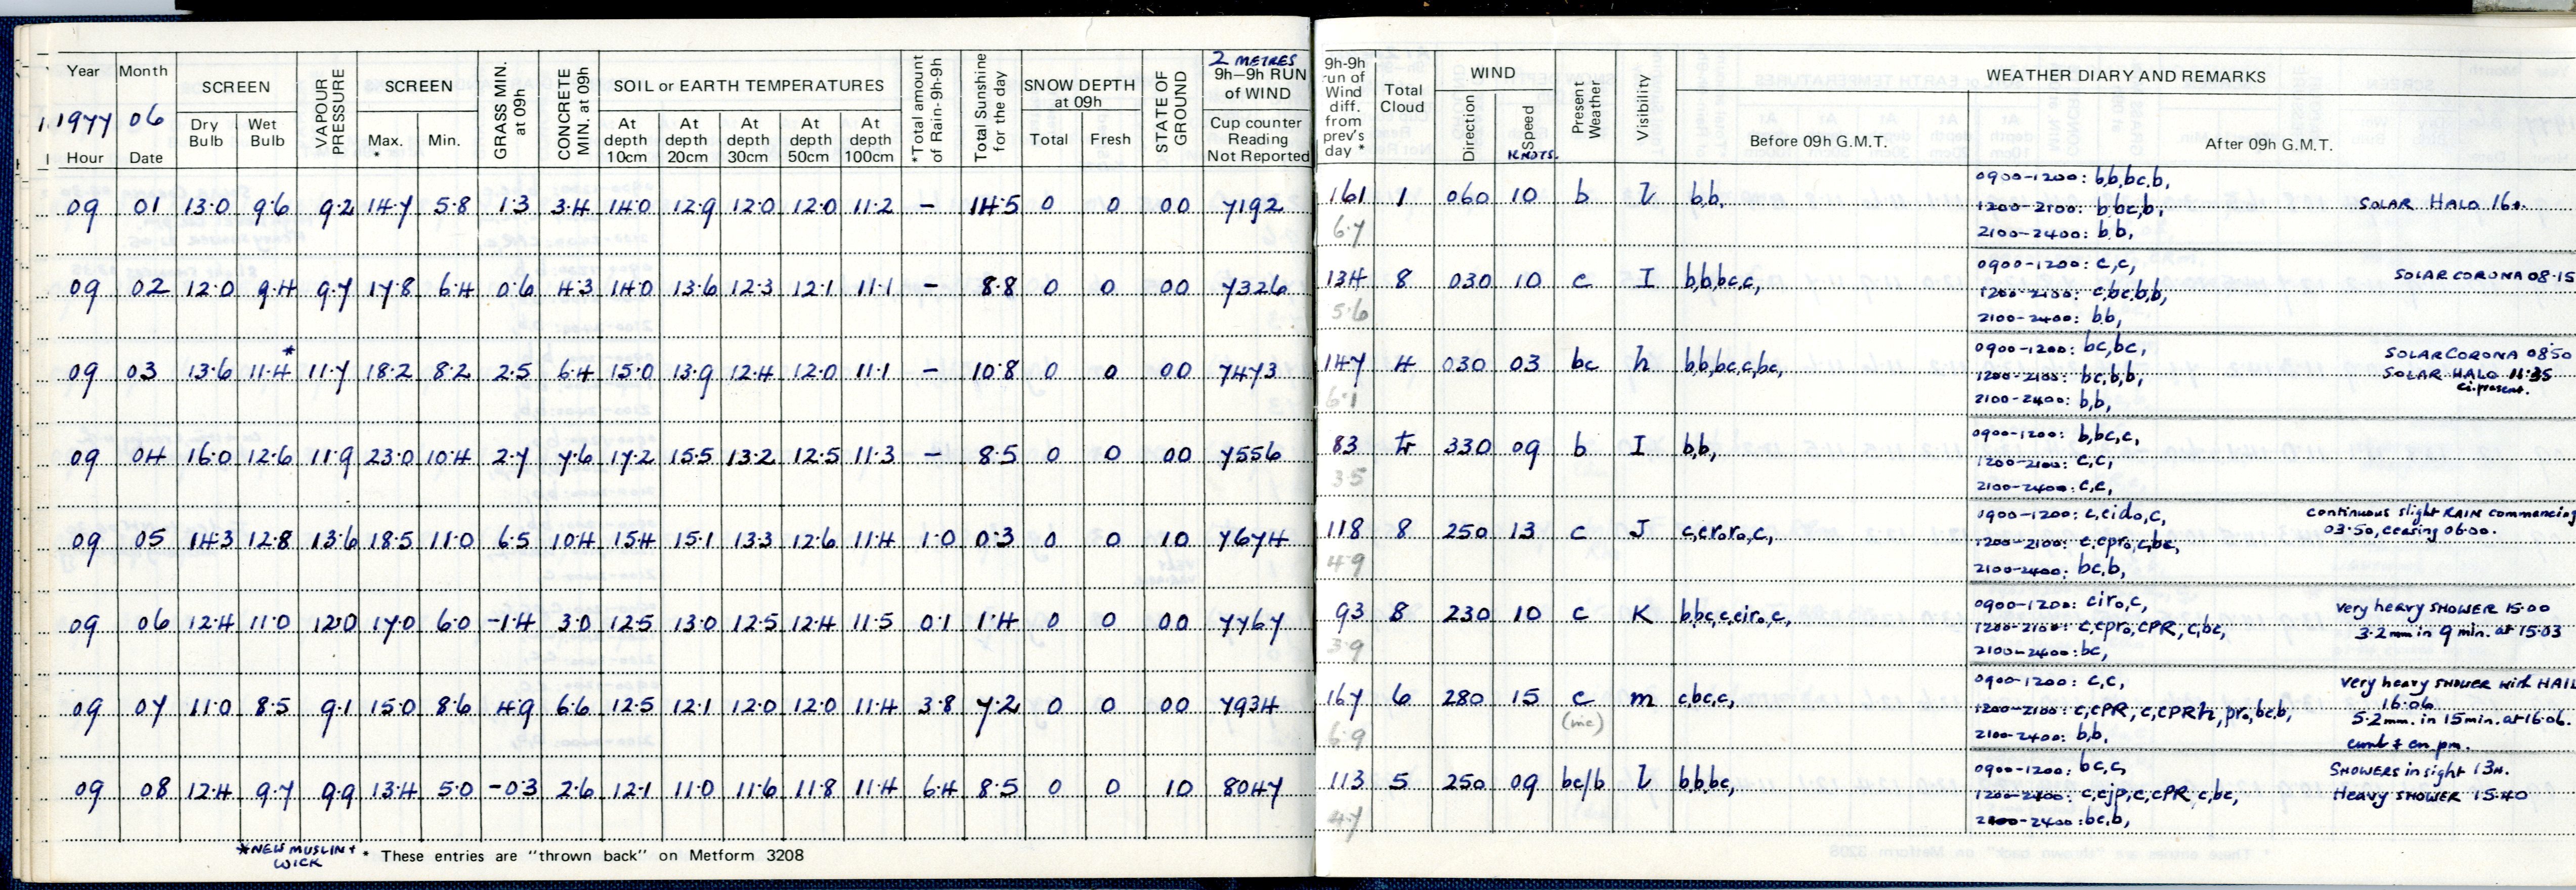 2 METRES
Year Month SCREEN VAPOUR PRESSURE SCREEN GRASS MIN. at 09h CONCRETE MIN. at 09h SOIL or EARTH TEMPERATURES *Total amount of Rain-9h-9h Total Sunshine for the day SNOW DEPTH at 09h STATE OF GROUND 9h-9h RUN of WIND
1977 06 Dry Bulb Wet Bulb Max. * Min. At depth 10cm At depth 20cm At depth 30cm At depth 50cm At depth 100cm Total Fresh Cup counter Reading Not Reported
Hour Date
09 01 13.0 9.6 9.2 14.7 5.8 1.3 3.4 14.0 12.9 12.0 12.0 11.2 - 14.5 0 0 00 7192
09 02 12.0 9.4 9.7 17.8 6.4 0.6 4.3 14.0 13.6 12.3 12.1 11.1 - 8.8 0 0 00 7326
*
09 03 13.6 11.4 11.7 18.2 8.2 2.5 6.4 15.0 13.9 12.4 12.0 11.1 - 10.8 0 0 00 7473
09 04 16.0 12.6 11.9 23.0 10.4 2.7 7.6 17.2 15.5 13.2 12.5 11.3 - 8.5 0 0 00 7556
09 05 14.3 12.8 13.6 18.5 11.0 6.5 10.4 15.4 15.1 13.3 12.6 11.4 1.0 0.3 0 0 10 7674
09 06 12.4 11.0 12.0 17.0 6.0 -1.4 3.0 12.5 13.0 12.5 12.4 11.5 0.1 1.4 0 0 00 7767
09 07 11.0 8.5 9.1 15.0 8.6 4.9 6.6 12.5 12.1 12.0 12.0 11.4 3.8 7.2 0 0 00 7934
09 08 12.4 9.7 9.9 13.4 5.0 -0.3 2.6 12.1 11.0 11.6 11.8 11.4 6.4 8.5 0 0 10 8047
*NEW MUSLIN + WICK
* These entries are "thrown back" on Metform 3208
9h-9h run of Wind diff. from prev's day * Total Cloud WIND Present Weather Visibility WEATHER DIARY AND REMARKS
Direction Speed KNOTS. Before 09h G.M.T. After 09h G.M.T.
0900-1200: b,b,bc,b,
161 1 060 10 b l b,b, 1200-2100: b,bc,b, SOLAR HALO 16
6.7 2100-2400: b,b,
0900-1200: c,c, SOLAR CORONA 08.15
134 8 030 10 c I b,b,bc,c, 1200-2100: c,bc,b,b,
5.6 2100-2400: b,b,
0900-1200: bc,bc, SOLAR CORONA 08.50
147 4 030 03 bc h b,b,bc,c,bc, 1200-2100: bc,b,b, SOLAR HALO 11.35
ci. present.
6.1 2100-2400: b,b,
0900-1200: b,bc,c,
83 tr 330 09 b I b,b, 1200-2100: c,c,
3.5 2100-2400: c,c,
0900-1200: c,cido,c, continuous slight RAIN commencing
118 8 250 13 c J c,croro,c, 1200-2100: c,cpro,c,bc, 03.50, ceasing 06.00.
4.9 2100-2400: bc,b,
0900-1200: ciro,c, very heavy SHOWER 15.00
93 8 230 10 c K b,bc,c,ciro,c, 1200-2100: c,cpro,cPR,c,bc, 3.2mm in 9 min. at 15.03
3.9 2100-2400: bc,
0900-1200: c,c, very heavy SHOWER with HAIL
167 6 280 15 c m c,bc,c, 1200-2100: c,cPR,c,cPRh,pro,bc,b, 16.06
(mc) 5.2mm. in 15min. at 16.06.
6.9 2100-2400: b,b,
0900-1200: bc,c, SHOWERS in sight 13H.
113 5 250 09 bc/b l b,b,bc, c,cjp,c,cPR,c,bc, Heavy SHOWER 15.40
4.7 2100-2400: bc,b,